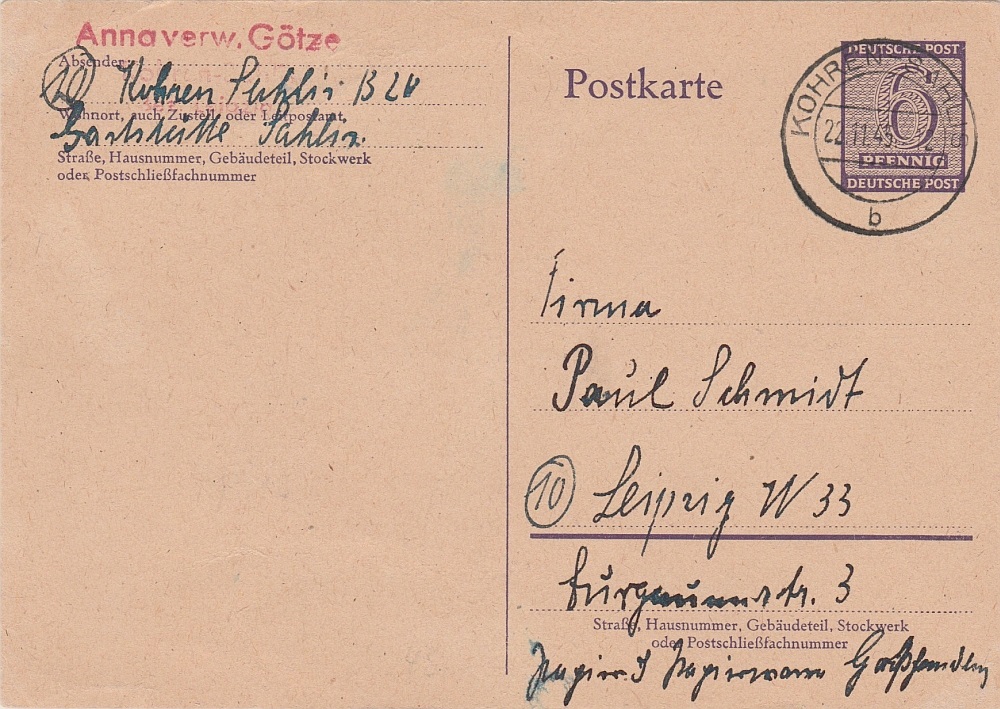 Anna verw. Götze
Absender:
(10) Kohren Sahlis B 20
Wohnort, auch Zustell- oder Leitpostamt,
Sahlis
Straße, Hausnummer, Gebäudeteil, Stockwerk
oder Postschließfachnummer
Postkarte
DEUTSCHE POST
6
PFENNIG
DEUTSCHE POST
KOHREN-SAHLIS
22.11.45
b
Firma
Paul Schmidt
(10) Leipzig W 33
str. 3
Straße, Hausnummer, Gebäudeteil, Stockwerk
oder Postschließfachnummer
Papier & Papierwaren Großhandlung